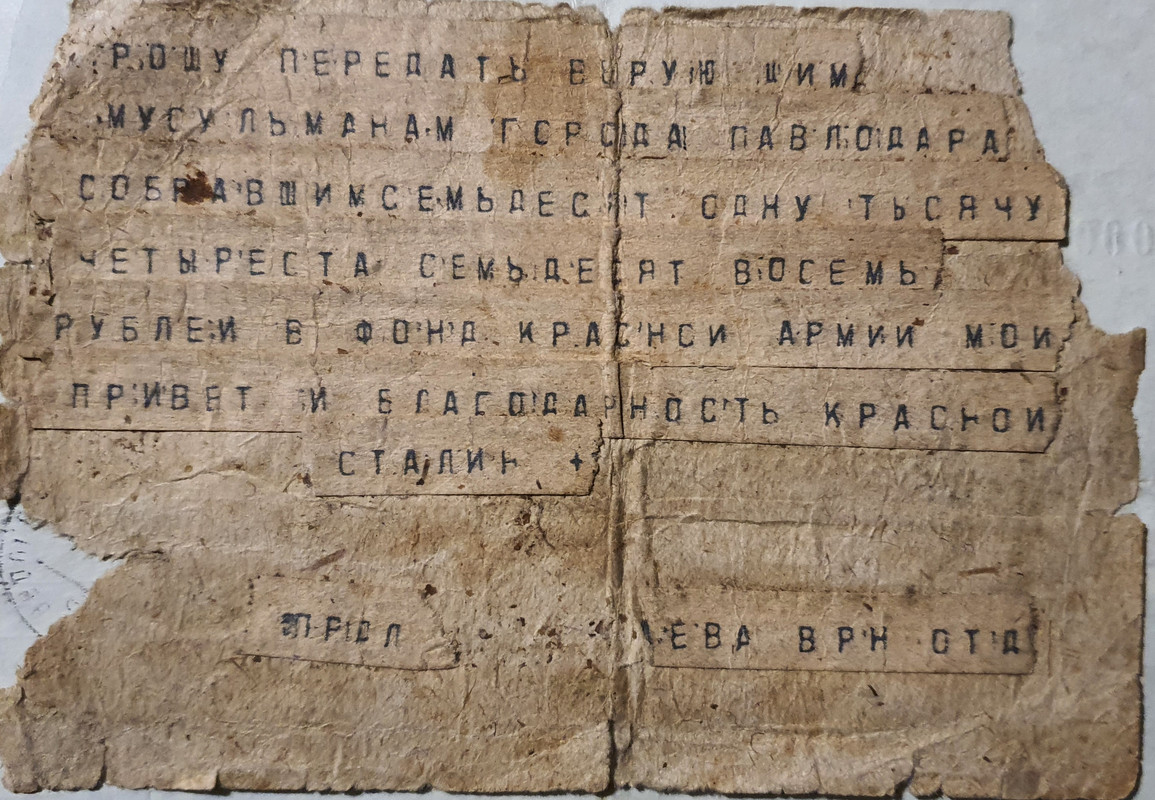 РОШУ ПЕРЕДАТЬ ВЕРУЮ ШИМ
МУСУЛЬМАНАМ ГОРОДА ПАВЛОДАРА
СОБРАВШИМСЕМЬДЕСЯТ ОДНУ ТЬСЯЧУ
ЧЕТЫРЕСТА СЕМЬДЕСЯТ ВОСЕМЬ
РУБЛЕИ В ФОНД КРАСНОИ АРМИИ МОИ
ПРИВЕТ И БЛАГОДАРНОСТЬ КРАСНОИ
СТАЛИН +
ЕВА ВРН ОТД